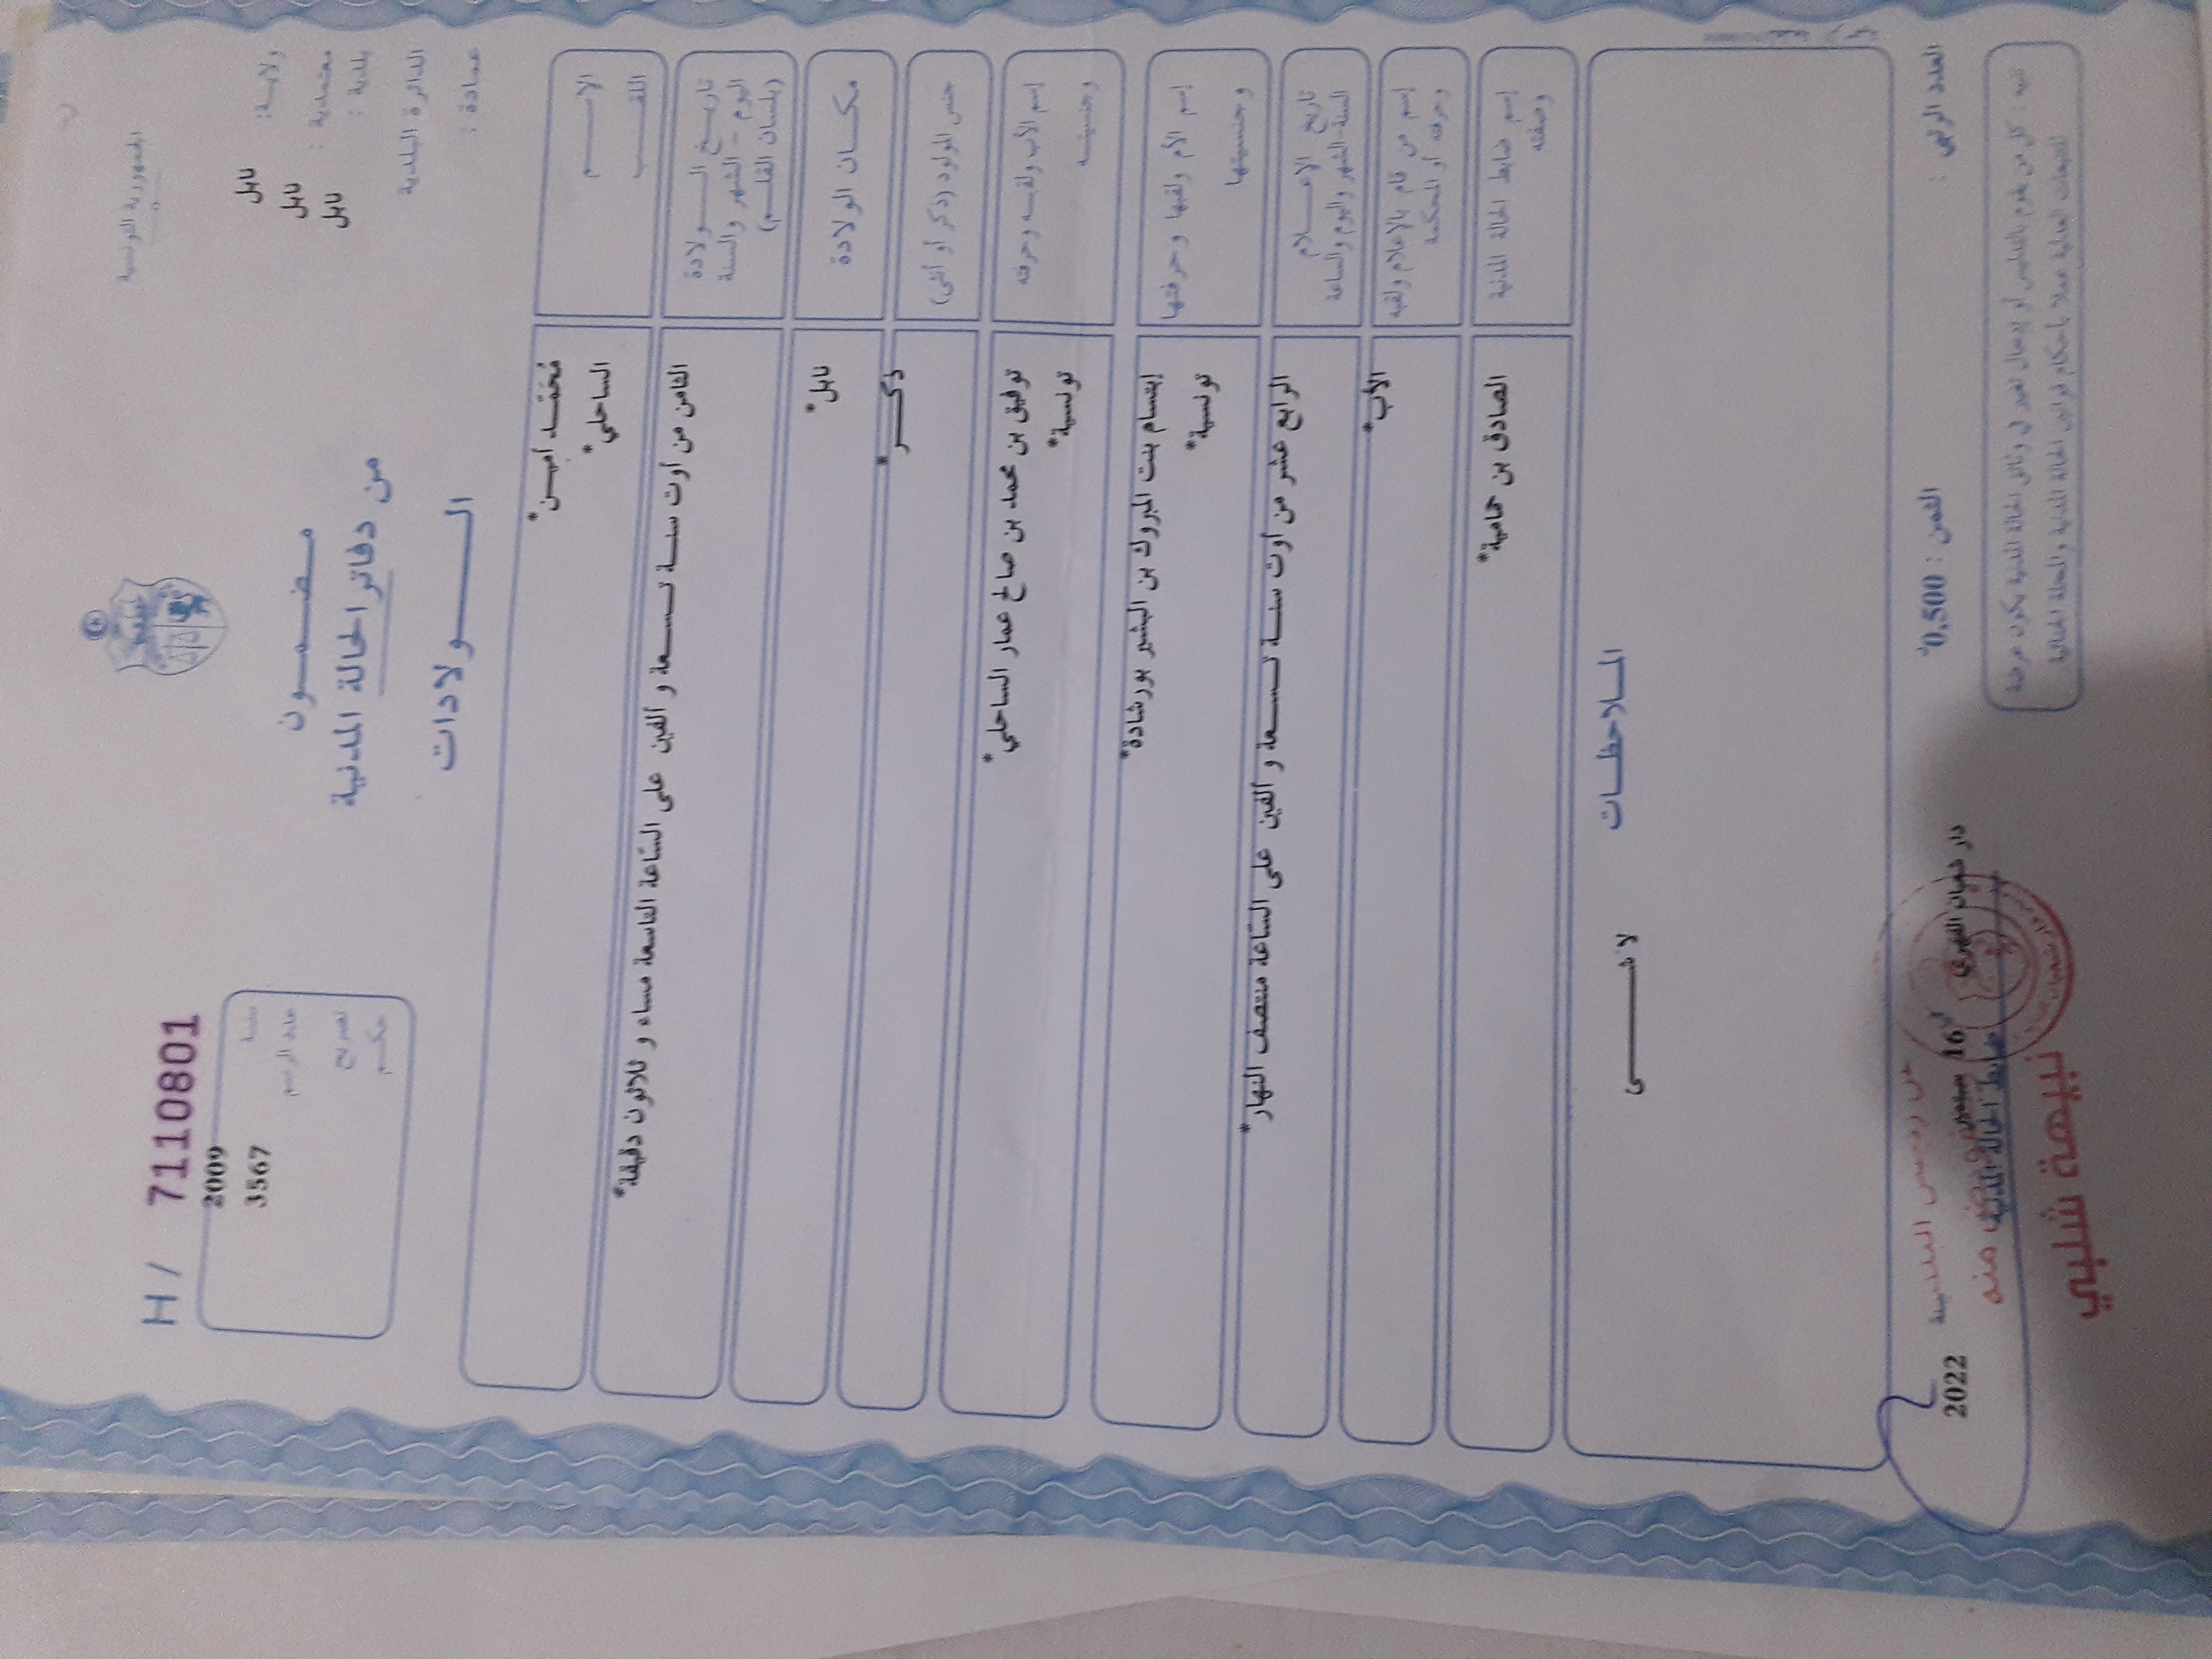 الجمهورية التونسية
ولاية: نابل
معتمدية: نابل
بلدية: نابل
الدائرة البلدية
عمادة:
H / 71110801
سنة 2009
عدد الرسم 3567
تصريح
حكم
مضمون
من دفاتر الحالة المدنية
الولادات
الاسم مُحَمّد أمين*
اللقب الساحلي*
تاريخ الولادة الثامن من أوت سنة تسعة و ألفين على السّاعة التاسعة مساء و ثلاثون دقيقة*
اليوم - الشهر والسنة
(بلسان القلم)
مكان الولادة نابل*
جنس المولود (ذكر أو أنثى) ذكر*
إسم الأب ولقبه وحرفته توفيق بن محمد بن صالح عمار الساحلي*
وجنسيته تونسية*
إسم الأم ولقبها وحرفتها إبتسام بنت المبروك بن البشير بورشادة*
وجنسيتها تونسية*
تاريخ الإعلام الرابع عشر من أوت سنة تسعة و ألفين على السّاعة منتصف النهار*
السنة-الشهر واليوم والساعة
إسم من قام بالإعلام ولقبه الأب*
وحرفته أو المحكمة
إسم ضابط الحالة المدنية الصادق بن حمامية*
وصفته
الملاحظات
لا شيء
العدد الرتبي :
الثمن : 0,500
دار شعبان الفهري في 16 2022
ضابط الحالة المدنية
عن رئيس البلدية
منه
نبيهة شلبي
تنبيه : كل من يقوم بالتدليس أو إدخال تغيير في وثائق الحالة المدنية يكون عرضة
للتتبعات العدلية عملا بأحكام قوانين الحالة المدنية والمجلة الجنائية